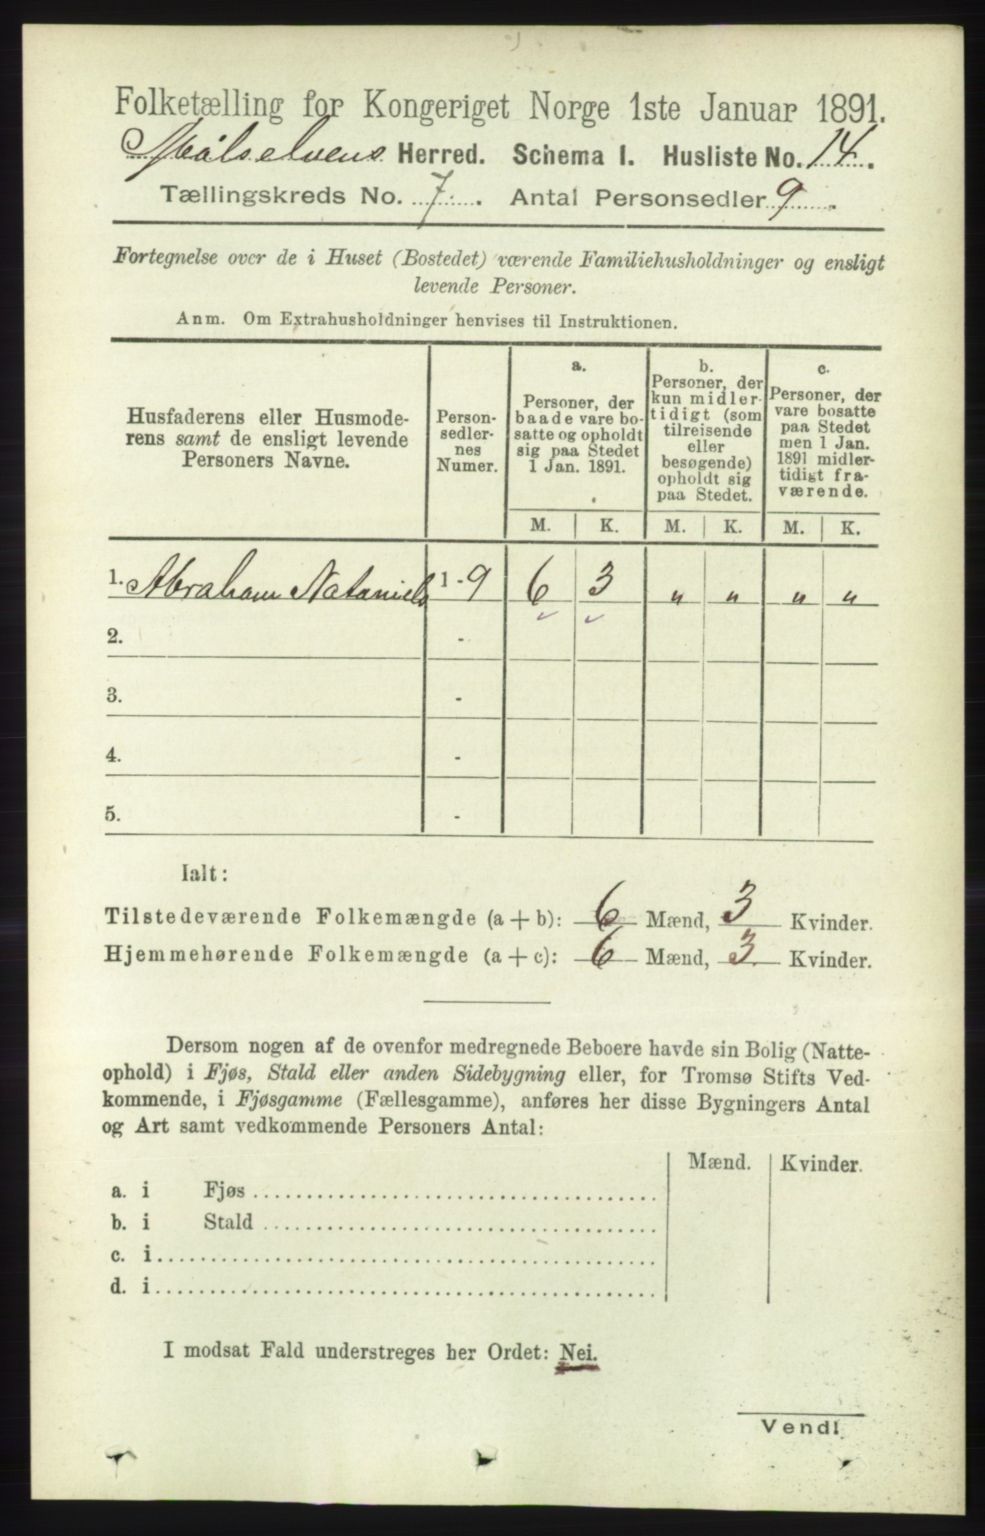 Folketælling for Kongeriget Norge 1ste Januar 1891.
Målselvens Herred. Schema I. Husliste No. 14.
Tællingskreds No. 7. Antal Personsedler 9.
Fortegnelse over de i Huset (Bostedet) værende Familiehusholdninger og ensligt
levende Personer.
Anm. Om Extrahusholdninger henvises til Instruktionen.
Husfaderens eller Husmode-
rens samt de ensligt levende
Personers Navne.
Person-
sedler-
nes
Numer.
a.
Personer, der
baade vare bo-
satte og opholdt
sig paa Stedet
1 Jan. 1891.
b.
Personer, der
kun midler-
tidigt (som
tilreisende
eller
besøgende)
opholdt sig
paa Stedet.
c.
Personer, der
vare bosatte
paa Stedet
men 1 Jan.
1891 midler-
tidigt fra-
værende.
M. K. M. K. M. K.
1. Abraham Nataniels 1-9 6 3 " " " "
2. -
3. -
4. -
5. -
Ialt:
Tilstedeværende Folkemængde (a + b): 6 Mænd, 3 Kvinder.
Hjemmehørende Folkemængde (a + c): 6 Mænd, 3 Kvinder.
Dersom nogen af de ovenfor medregnede Beboere havde sin Bolig (Natte-
ophold) i Fjøs, Stald eller anden Sidebygning eller, for Tromsø Stifts Ved-
kommende, i Fjøsgamme (Fællesgamme), anføres her disse Bygningers Antal
og Art samt vedkommende Personers Antal:
Mænd. Kvinder.
a. i Fjøs
b. i Stald
c. i
d. i
I modsat Fald understreges her Ordet: Nei.
Vend!